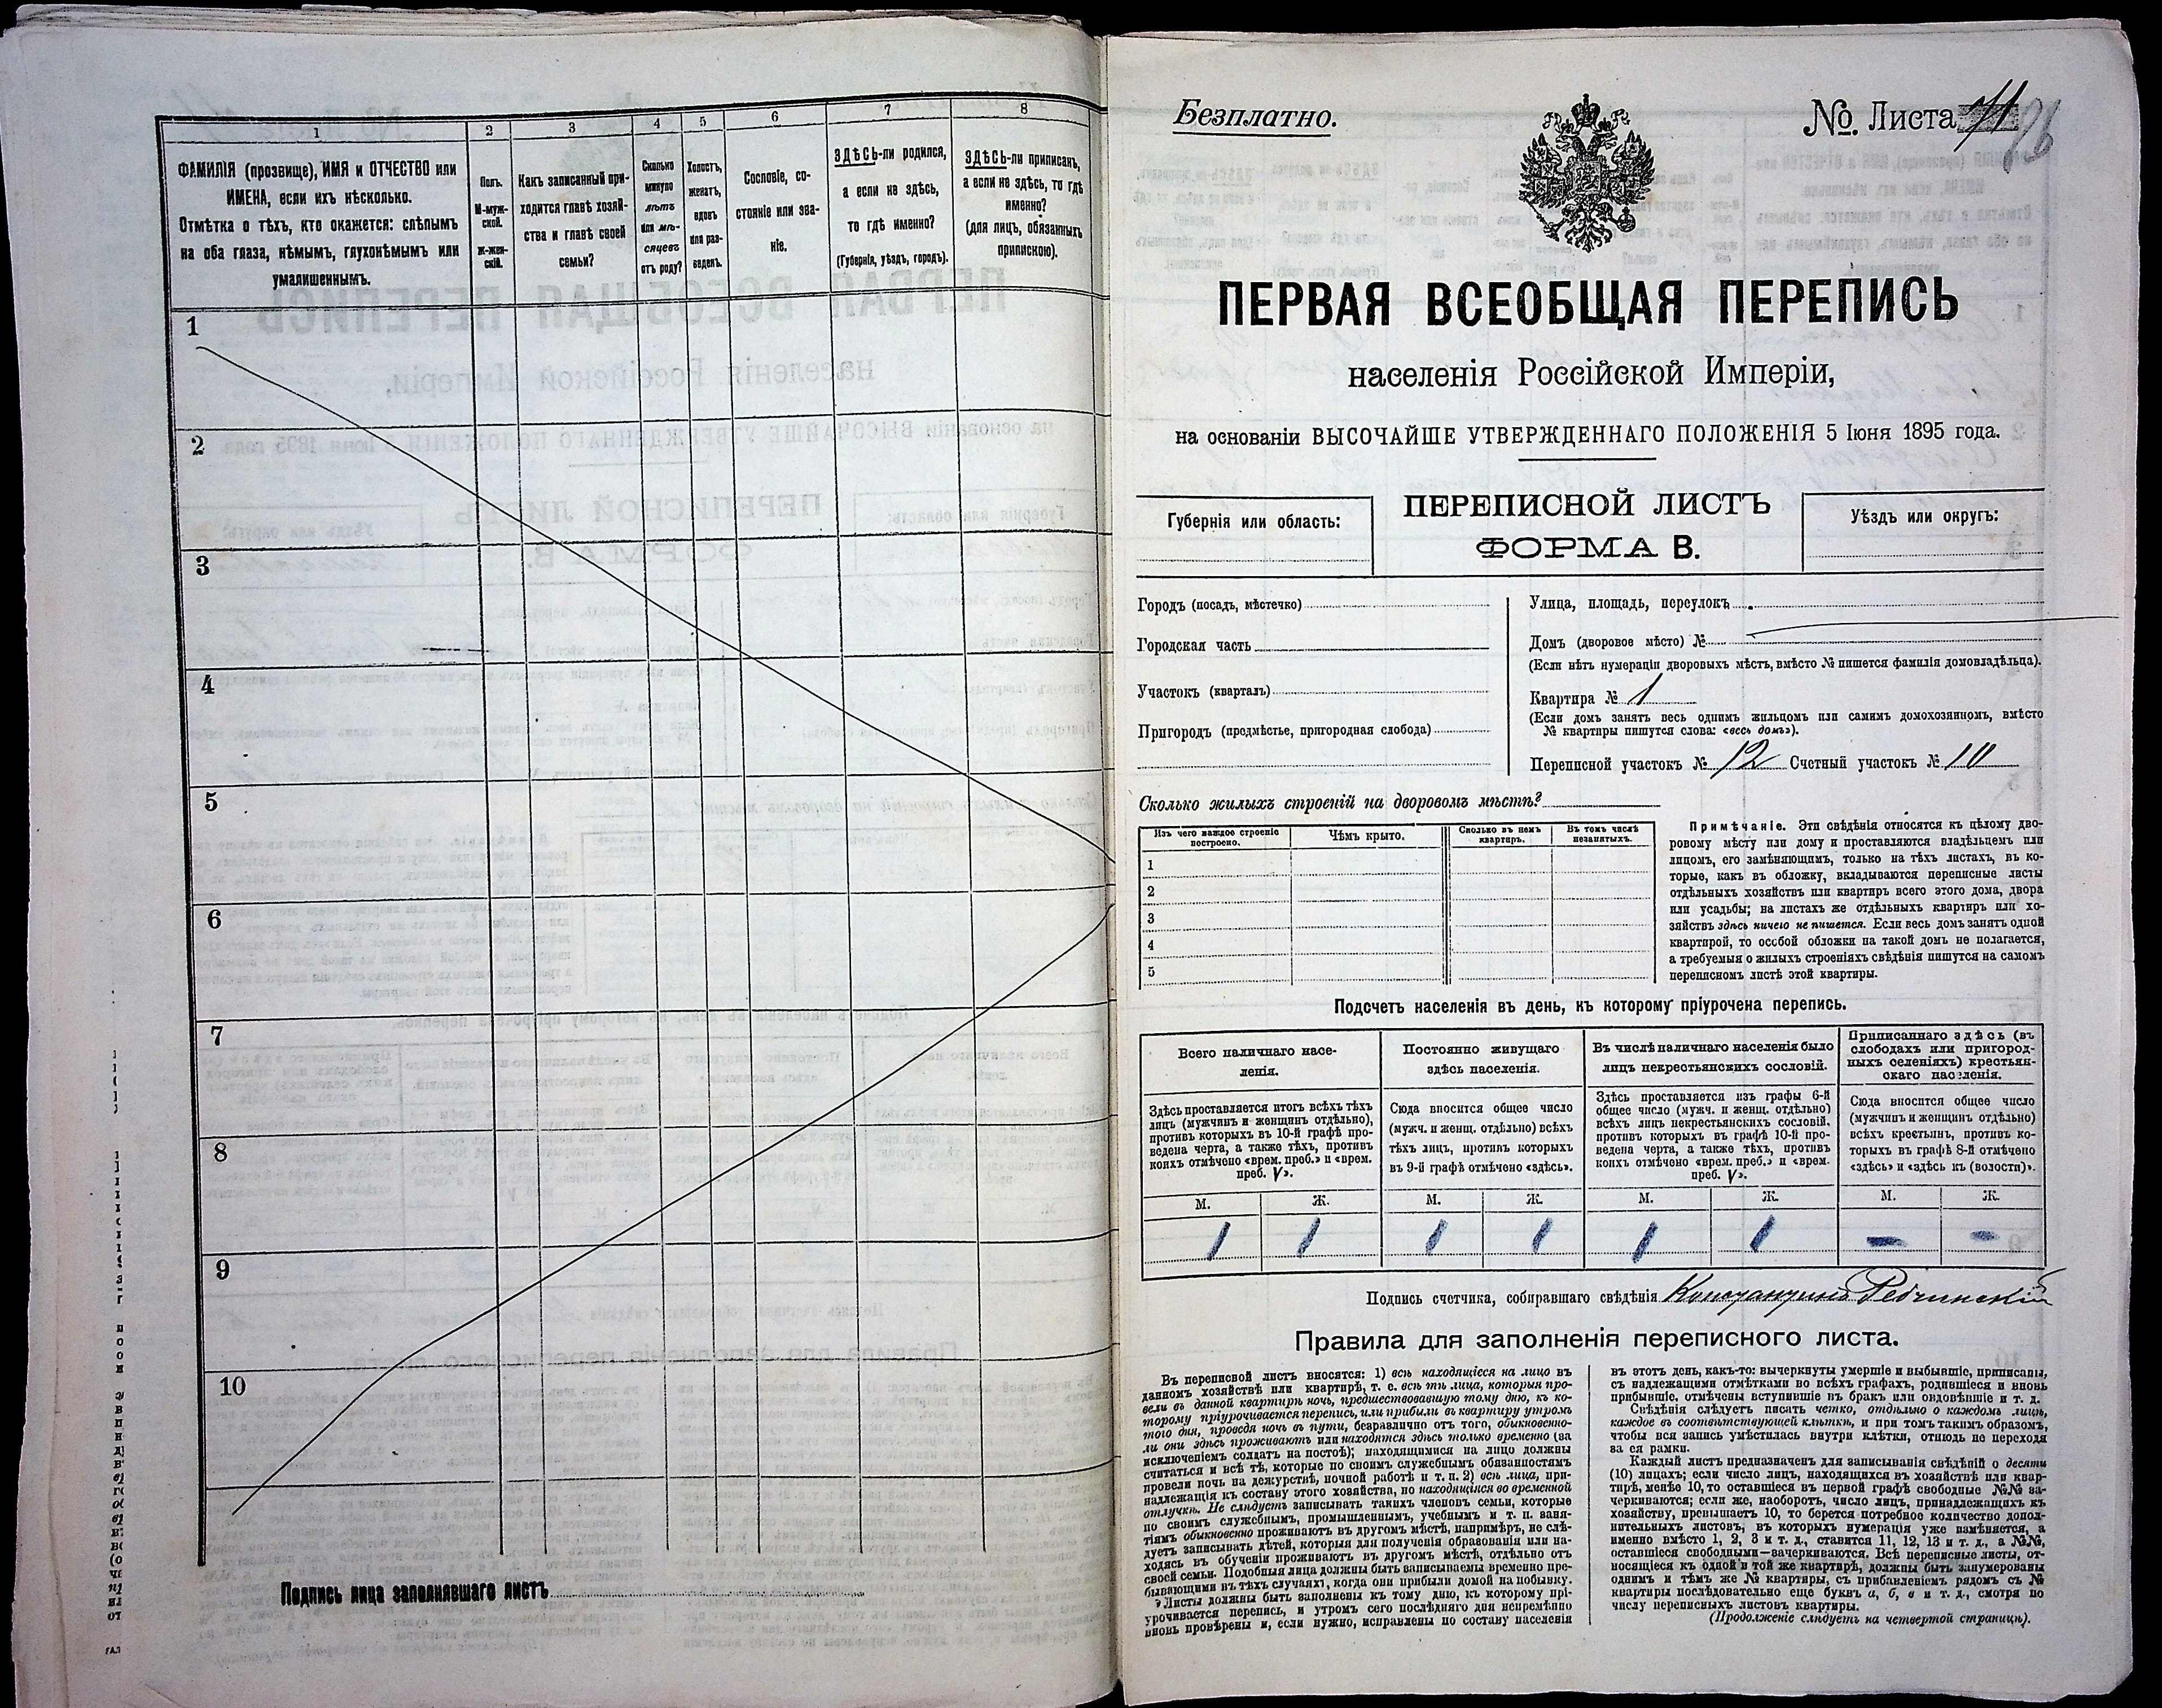 1
2
3
4
5
6
7
8
ФАМИЛІЯ (прозвище), ИМЯ и ОТЧЕСТВО или
ИМЕНА, если ихъ нѣсколько.
Отмѣтка о тѣхъ, кто окажется: слѣпымъ
на оба глаза, нѣмымъ, глухонѣмымъ или
умалишеннымъ.
Полъ.
М-муж-
ской.
Ж-жен-
скій.
Какъ записанный при-
ходится главѣ хозяй-
ства и главѣ своей
семьи?
Сколько
минуло
лѣтъ
или мѣ-
сяцевъ
отъ роду?
Холостъ,
женатъ,
вдовъ
или раз-
веденъ.
Сословіе, со-
стояніе или зва-
ніе.
ЗДѢСЬ-ли родился,
а если не здѣсь,
то гдѣ именно?
(Губернія, уѣздъ, городъ).
ЗДѢСЬ-ли приписанъ,
а если не здѣсь, то гдѣ
именно?
(для лицъ, обязанныхъ
припискою).
1
2
3
4
5
6
7
8
9
10
Подпись лица заполнявшаго листъ
Безплатно.
№. Листа
ПЕРВАЯ ВСЕОБЩАЯ ПЕРЕПИСЬ
населенія Россійской Имперіи,
на основаніи ВЫСОЧАЙШЕ УТВЕРЖДЕННАГО ПОЛОЖЕНІЯ 5 Іюня 1895 года.
Губернія или область:
ПЕРЕПИСНОЙ ЛИСТЪ
ФОРМА В.
Уѣздъ или округъ:
Городъ (посадъ, мѣстечко)
Городская часть
Участокъ (кварталъ)
Пригородъ (предмѣстье, пригородная слобода)
Улица, площадь, переулокъ
Домъ (дворовое мѣсто) №
(Если нѣтъ нумераціи дворовыхъ мѣстъ, вмѣсто № пишется фамилія домовладѣльца).
Квартира № 1
(Если домъ занятъ весь однимъ жильцомъ или самимъ домохозяиномъ, вмѣсто
№ квартиры пишутся слова: «весь домъ»).
Переписной участокъ № 12 Счетный участокъ № 10
Сколько жилыхъ строеній на дворовомъ мѣстѣ?
Изъ чего каждое строеніе
построено.
Чѣмъ крыто.
Сколько въ немъ
квартиръ.
Въ томъ числѣ
незанятыхъ.
1
2
3
4
5
Примѣчаніе. Эти свѣдѣнія относятся къ цѣлому дво-
ровому мѣсту или дому и проставляются владѣльцемъ или
лицомъ, его замѣняющимъ, только на тѣхъ листахъ, въ ко-
торые, какъ въ обложку, вкладываются переписные листы
отдѣльныхъ хозяйствъ или квартиръ всего этого дома, двора
или усадьбы; на листахъ же отдѣльныхъ квартиръ или хо-
зяйствъ здѣсь ничего не пишется. Если весь домъ занятъ одной
квартирой, то особой обложки на такой домъ не полагается,
а требуемыя о жилыхъ строеніяхъ свѣдѣнія пишутся на самомъ
переписномъ листѣ этой квартиры.
Подсчетъ населенія въ день, къ которому пріурочена перепись.
Всего наличнаго насе-
ленія.
Здѣсь проставляется итогъ всѣхъ тѣхъ
лицъ (мужчинъ и женщинъ отдѣльно),
противъ которыхъ въ 10-й графѣ про-
ведена черта, а также тѣхъ, противъ
коихъ отмѣчено «врем. преб.» и «врем.
преб. V».
Постоянно живущаго
здѣсь населенія.
Сюда вносится общее число
(мужч. и женщ. отдѣльно) всѣхъ
тѣхъ лицъ, противъ которыхъ
въ 9-й графѣ отмѣчено «здѣсь».
Въ числѣ наличнаго населенія было
лицъ некрестьянскихъ сословій.
Здѣсь проставляется изъ графы 6-й
общее число (мужч. и женщ. отдѣльно)
всѣхъ лицъ некрестьянскихъ сословій,
противъ которыхъ въ графѣ 10-й про-
ведена черта, а также тѣхъ, противъ
коихъ отмѣчено «врем. преб.» и «врем.
преб. V».
Приписаннаго здѣсь (въ
слободахъ или пригород-
ныхъ селеніяхъ) крестьян-
скаго населенія.
Сюда вносится общее число
(мужчинъ и женщинъ отдѣльно)
всѣхъ крестьянъ, противъ ко-
торыхъ въ графѣ 8-й отмѣчено
«здѣсь» и «здѣсь къ (волости)».
М. Ж. М. Ж. М. Ж. М. Ж.
1 1 1 1 1 1 - -
Подпись счетчика, собиравшаго свѣдѣнія Константинъ Редчинскій
Правила для заполненія переписного листа.
Въ переписной листъ вносятся: 1) всѣ находящіеся на лицо въ
данномъ хозяйствѣ или квартирѣ, т. е. всѣ тѣ лица, которыя про-
вели въ данной квартирѣ ночь, предшествовавшую тому дню, къ ко-
торому пріурочивается перепись, или прибыли въ квартиру утромъ
того дня, проведя ночь въ пути, безразлично отъ того, обыкновенно-
ли они здѣсь проживаютъ или находятся здѣсь только временно (за
исключеніемъ солдатъ на постоѣ); находящимися на лицо должны
считаться и всѣ тѣ, которые по своимъ служебнымъ обязанностямъ
провели ночь на дежурствѣ, ночной работѣ и т. п. 2) всѣ лица, при-
надлежащія къ составу этого хозяйства, но находящіяся во временной
отлучкѣ. Не слѣдуетъ записывать такихъ членовъ семьи, которые
по своимъ служебнымъ, промышленнымъ, учебнымъ и т. п. заня-
тіямъ обыкновенно проживаютъ въ другомъ мѣстѣ, напримѣръ, не слѣ-
дуетъ записывать дѣтей, которыя для полученія образованія или на-
ходясь въ обученіи проживаютъ въ другомъ мѣстѣ, отдѣльно отъ
своей семьи. Подобныя лица должны быть записываемы временно пре-
бывающими въ тѣхъ случаяхъ, когда они прибыли домой на побывку.
Листы должны быть заполнены къ тому дню, къ которому прі-
урочивается перепись, и утромъ сего послѣдняго дня непремѣнно
вновь провѣрены и, если нужно, исправлены по составу населенія
въ этотъ день, какъ-то: вычеркнуты умершіе и выбывшіе, приписаны,
съ надлежащими отмѣтками во всѣхъ графахъ, родившіеся и вновь
прибывшіе, отмѣчены вступившіе въ бракъ или овдовѣвшіе и т. д.
Свѣдѣнія слѣдуетъ писать четко, отдѣльно о каждомъ лицѣ,
каждое въ соотвѣтствующей клѣткѣ, и при томъ такимъ образомъ,
чтобы вся запись умѣстилась внутри клѣтки, отнюдь не переходя
за ея рамки.
Каждый листъ предназначенъ для записыванія свѣдѣній о десяти
(10) лицахъ; если число лицъ, находящихся въ хозяйствѣ или квар-
тирѣ, менѣе 10, то оставшіеся въ первой графѣ свободные №№ за-
черкиваются; если же, наоборотъ, число лицъ, принадлежащихъ къ
хозяйству, превышаетъ 10, то берется потребное количество допол-
нительныхъ листовъ, въ которыхъ нумерація уже измѣняется, а
именно вмѣсто 1, 2, 3 и т. д., ставится 11, 12, 13 и т. д., а №№,
оставшіеся свободными—зачеркиваются. Всѣ переписные листы, от-
носящіеся къ одной и той же квартирѣ, должны быть занумерованы
однимъ и тѣмъ же № квартиры, съ прибавленіемъ рядомъ съ №
квартиры послѣдовательно еще буквъ а, б, в и т. д., смотря по
числу переписныхъ листовъ квартиры.
(Продолженіе слѣдуетъ на четвертой страницѣ).